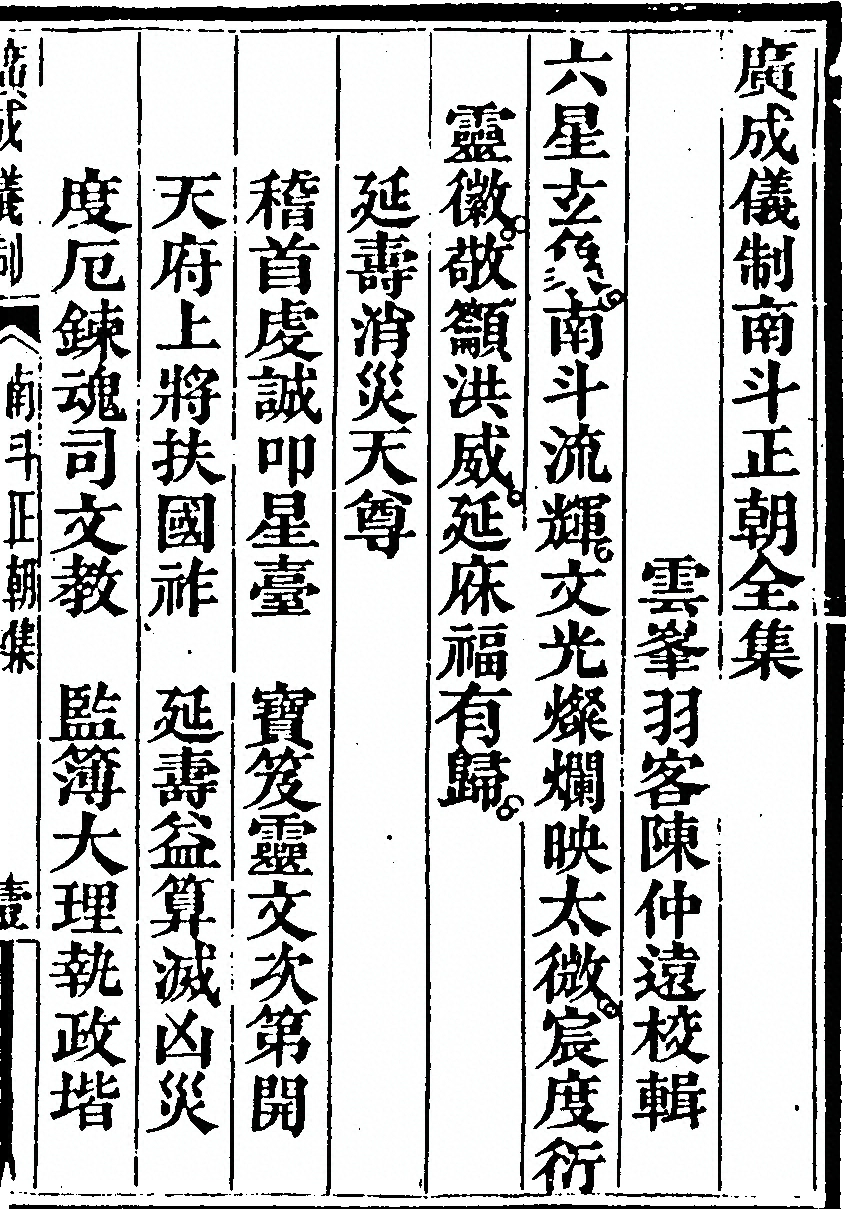 廣成儀制南斗正朝全集
雲峯羽客陳仲遠校輯
六星玄 南斗流輝文光燦爛映太微宸度衍
靈徽敬籲洪威延庥福有歸
延壽消災天尊
稽首虔誠叩星臺　寶笈靈文次第開
天府上將扶國祚　延壽益算滅凶災
度厄鍊魂司文教　監簿大理執政堦
廣成儀制　南斗正朝集　壹